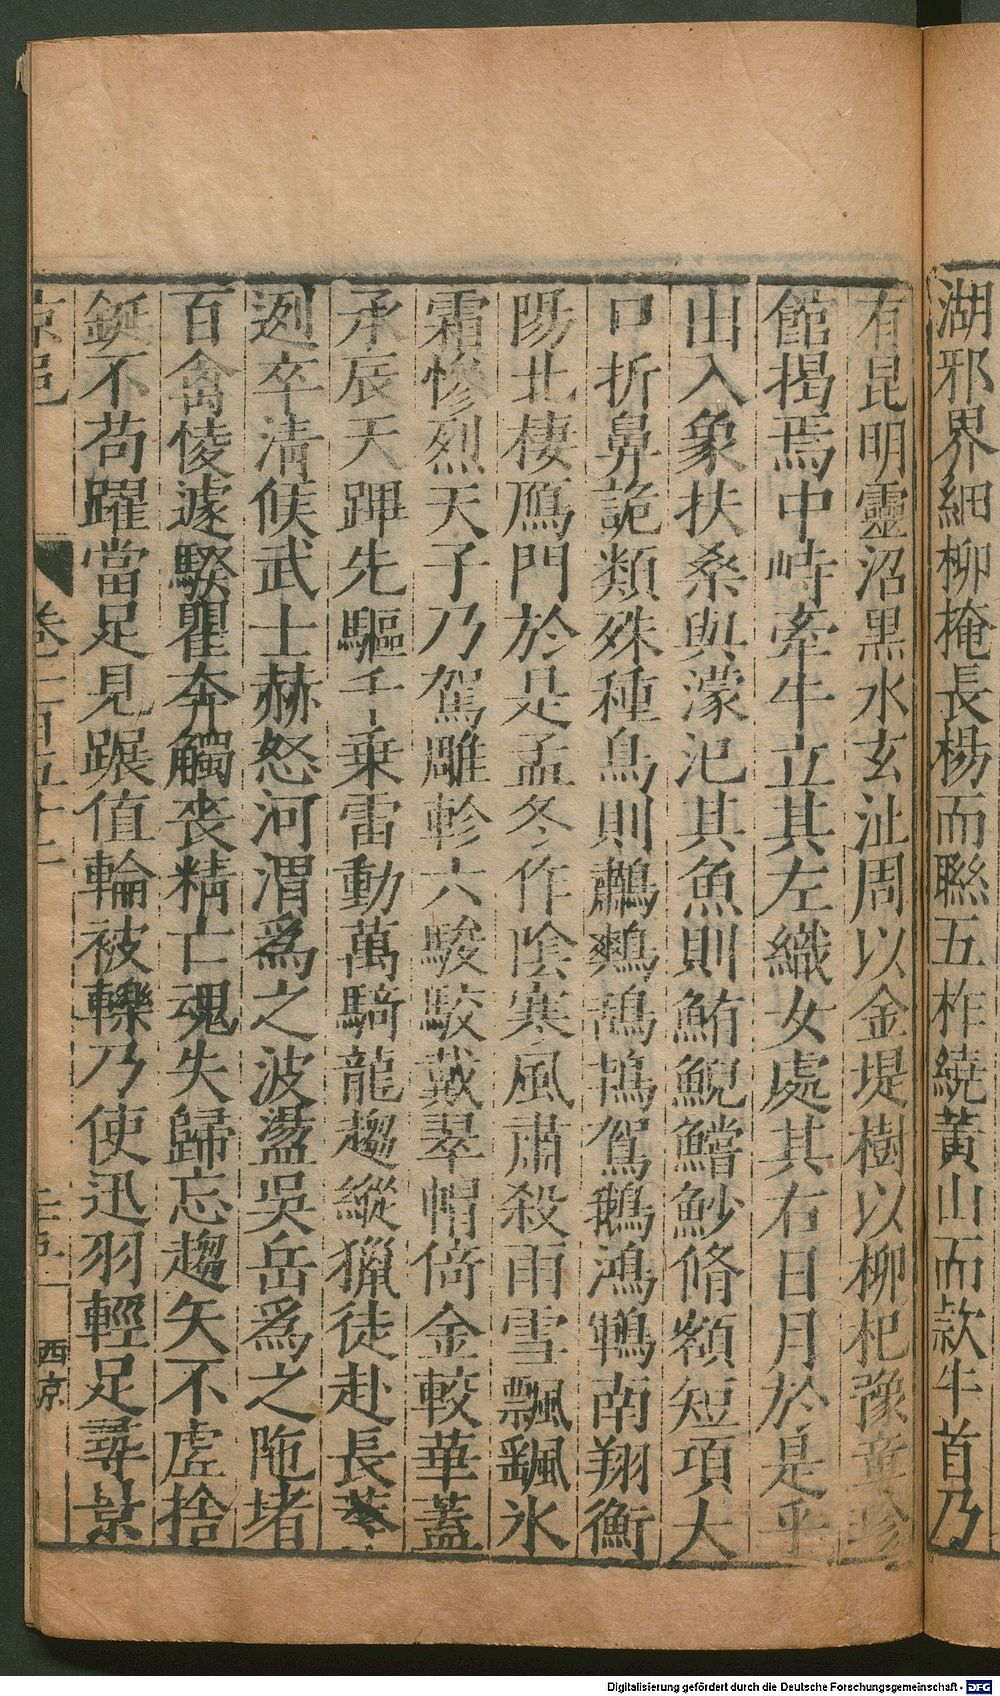 湖邪界細柳掩長楊而聯五柞繞黃山而款牛首乃
有昆明靈沼黒水玄沚周以金堤樹以柳杞豫章珍
館揭焉中峙牽牛立其左織女處其右日月於是乎
出入象扶桑與濛汜其魚則鮪鯢鱨魦脩額短項大
口折鼻詭類殊種鳥則鷫鷞鴰鴇鴐鵝鴻鶤南翔衡
陽北棲鴈門於是孟冬作陰寒風肅殺雨雪飄飄氷
霜慘烈天子乃駕雕軫六駿駮戴翠帽倚金較華蓋
承辰天蹕先驅千乗雷動萬騎龍趨縱獵徒赴長莽
迾卒清候武士赫怒河渭爲之波盪吳岳爲之陁堵
百禽㥄遽騤瞿奔觸䘮精亡魂失歸忘趨矢不虛捨
鋋不苟躍當足見蹍值輪被轢乃使迅羽輕足尋景
京邑 卷 西京
Digitalisierung gefördert durch die Deutsche Forschungsgemeinschaft - DFG